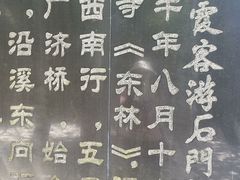 霞客游石門
年年八月十
寺《东林》
西南行，五
广济桥，始
，沿溪东向